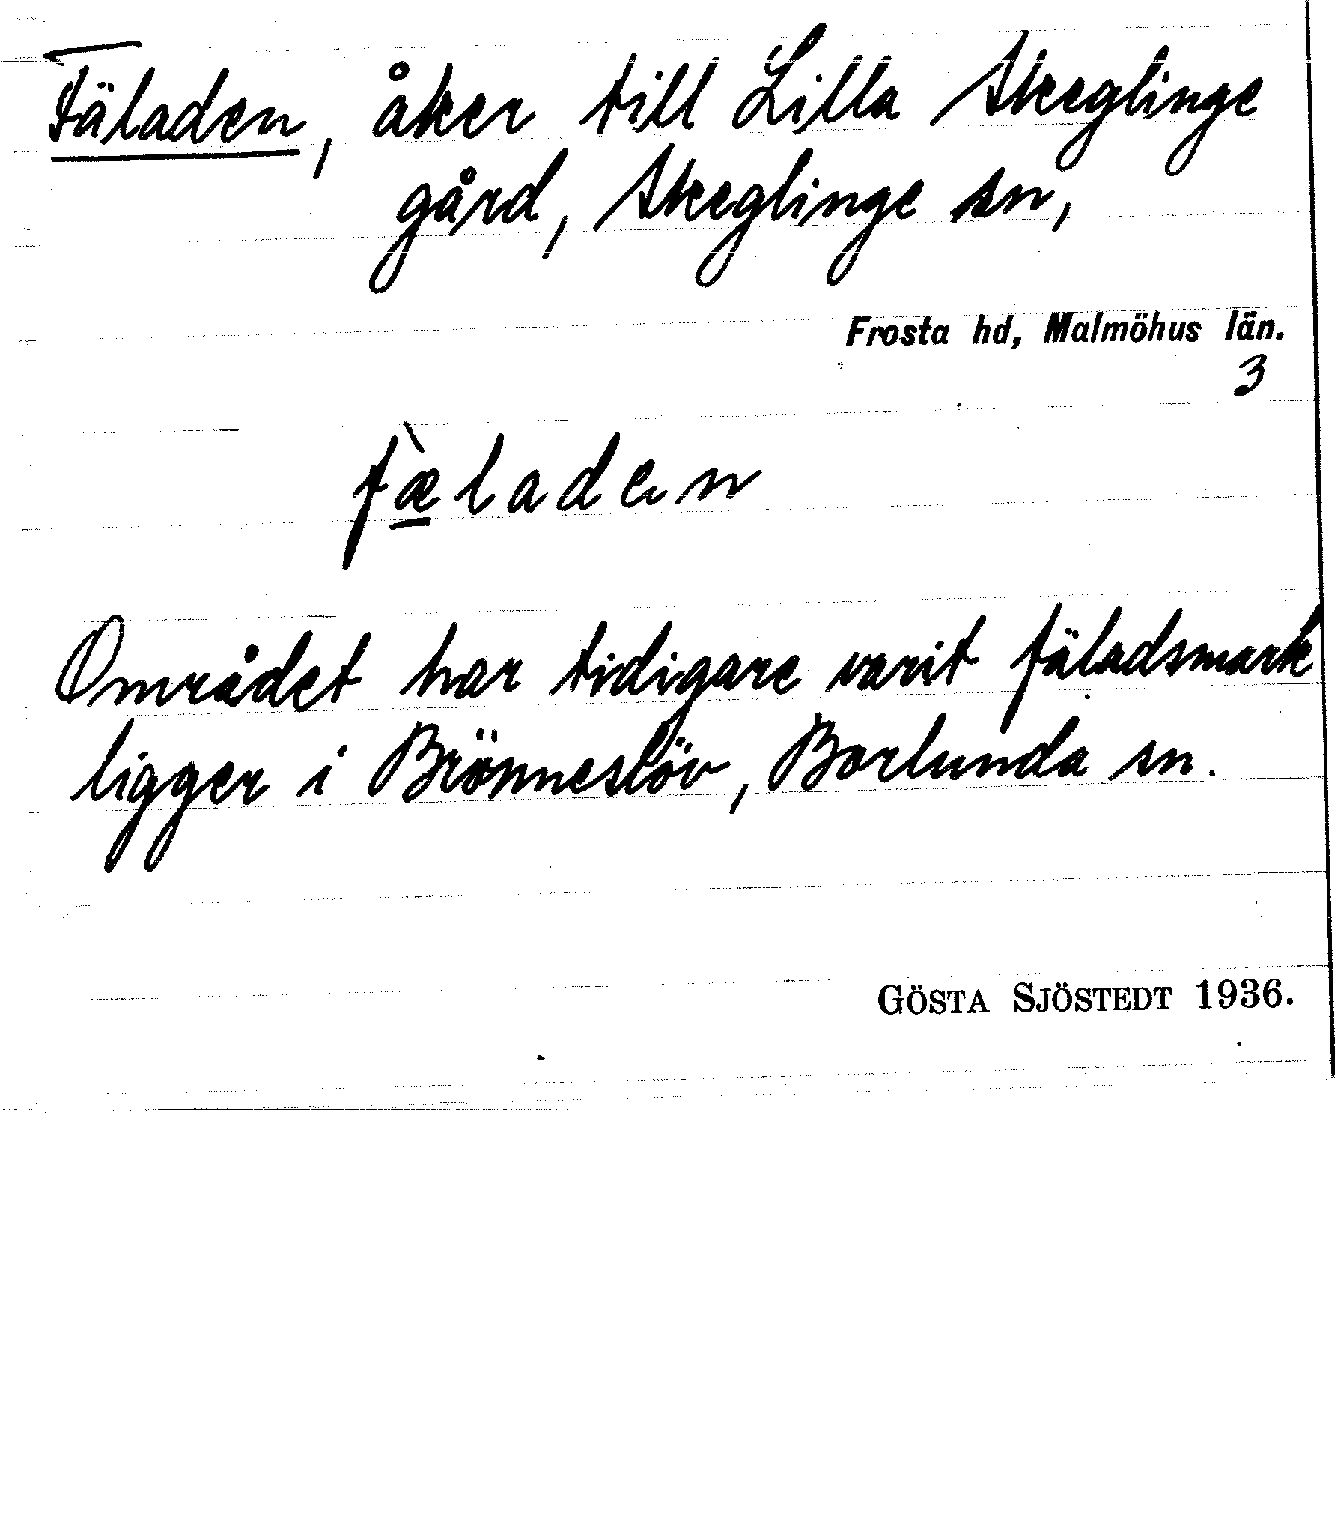 Fäladen, åker till Lilla Skeglinge
gård, Skeglinge sn,
Frosta hd, Malmöhus län.
3
fæ̀laden
Området har tidigare varit fäladsmark
ligger i Brönneslöv, Borlunda sn.
GÖSTA SJÖSTEDT 1936.